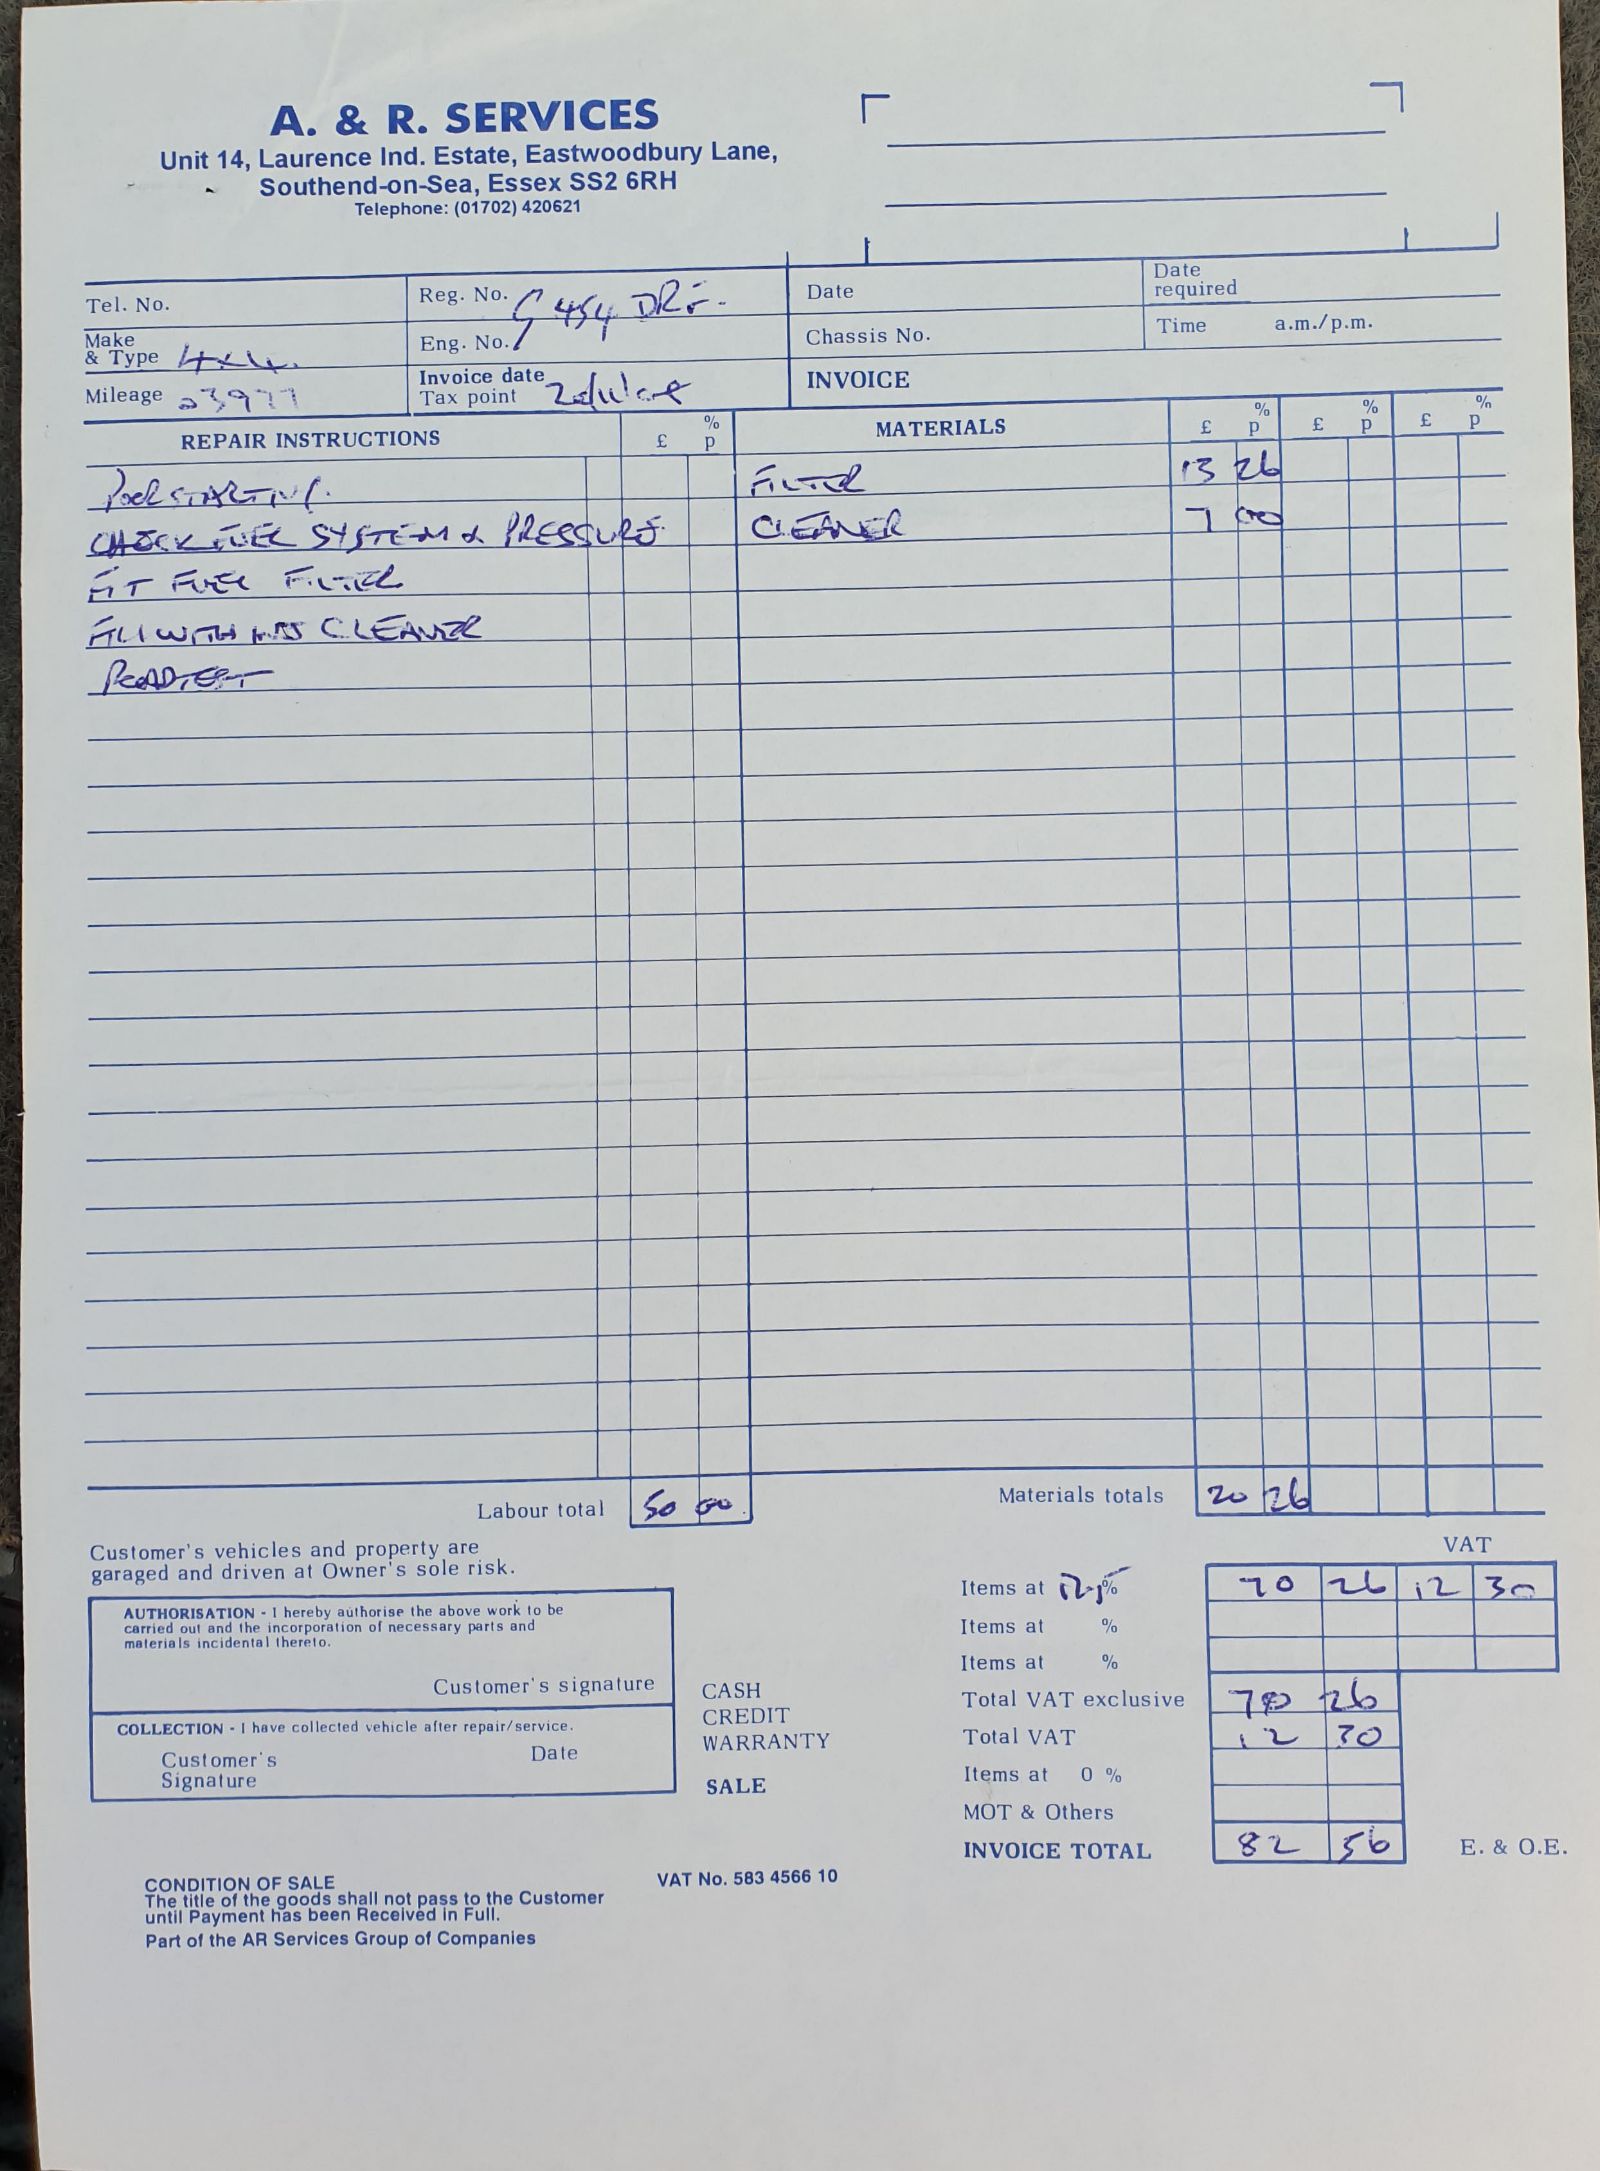 A. & R. SERVICES
Unit 14, Laurence Ind. Estate, Eastwoodbury Lane,
Southend-on-Sea, Essex SS2 6RH
Telephone: (01702) 420621
Tel. No.
Reg. No. G 454 DRF
Date
Date required
Make & Type 4x4.
Eng. No.
Chassis No.
Time a.m./p.m.
Mileage 23977
Invoice date
Tax point
INVOICE
REPAIR INSTRUCTIONS £ % p MATERIALS £ % p £ % p £ % p
POOR STARTING. FILTER 13 26
CHECK FUEL SYSTEM & PRESSURE CLEANER 7 00
FIT FUEL FILTER
FILL WITH CLEANER
ROADTEST
Labour total 50 00 Materials totals 20 26
Customer's vehicles and property are
garaged and driven at Owner's sole risk.
VAT
Items at 17.5% 70 26 12 30
Items at %
Items at %
Total VAT exclusive 70 26
Total VAT 12 30
Items at 0 %
MOT & Others
INVOICE TOTAL 82 56 E. & O.E.
AUTHORISATION - I hereby authorise the above work to be
carried out and the incorporation of necessary parts and
materials incidental thereto.
Customer's signature
COLLECTION - I have collected vehicle after repair/service.
Customer's Signature Date
CASH
CREDIT
WARRANTY
SALE
CONDITION OF SALE
The title of the goods shall not pass to the Customer
until Payment has been Received in Full.
Part of the AR Services Group of Companies
VAT No. 583 4566 10